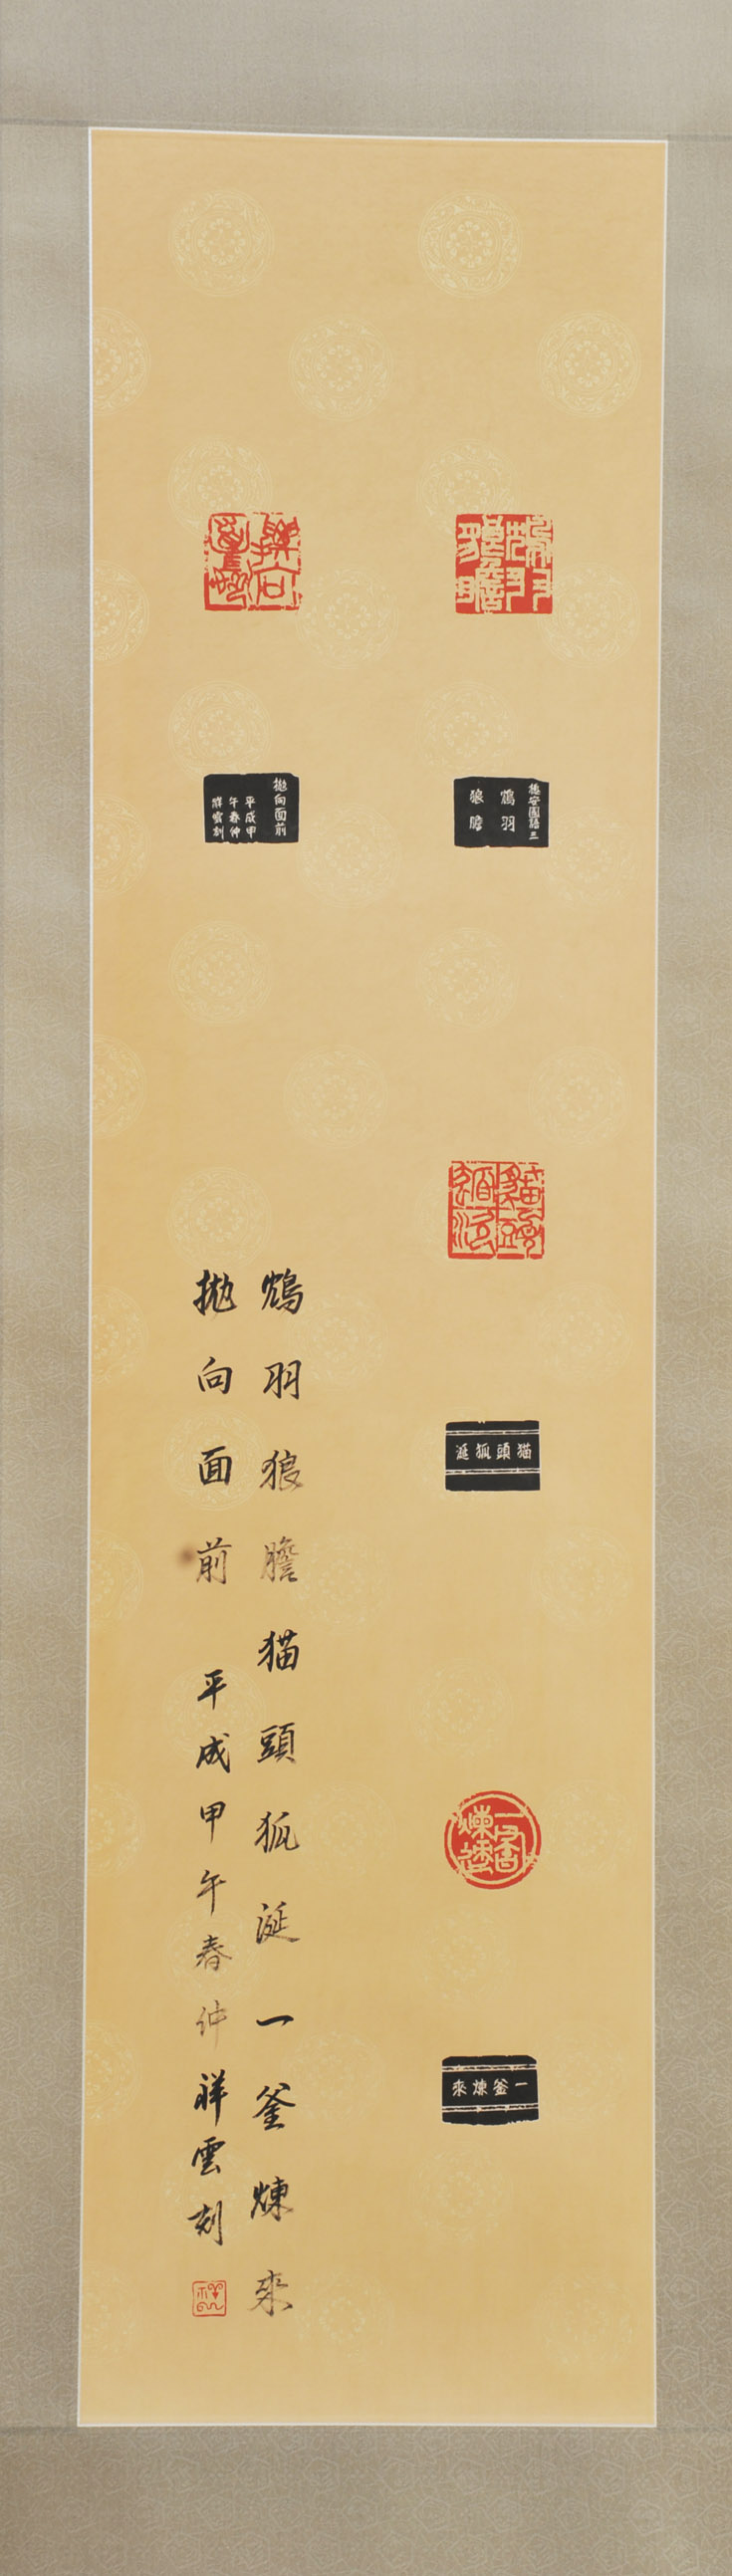 鴆羽狼膽
鴆羽
狼膽
貓頭狐涎
猫頭狐涎
一釜煉來
一釜煉來
拋向面前
拋向面前
平成甲
午春仲
祥雲刻
鴆羽狼膽猫頭狐涎一釜煉來
拋向面前 平成甲午春仲祥雲刻